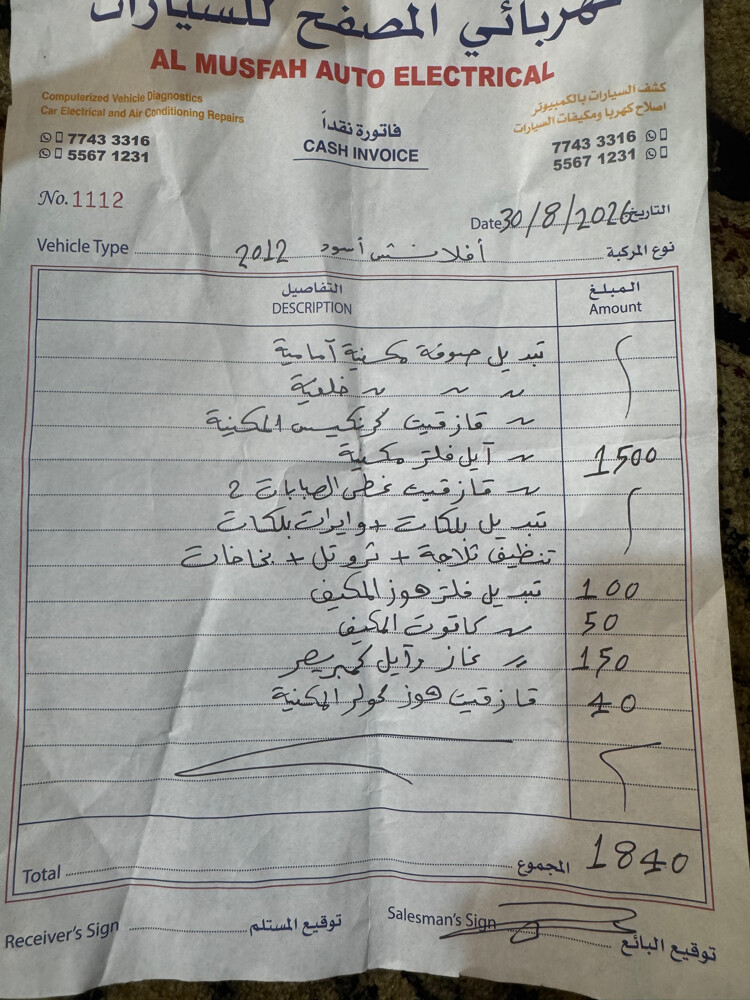 كهربائي المصفح للسيارات
AL MUSFAH AUTO ELECTRICAL
Computerized Vehicle Diagnostics
Car Electrical and Air Conditioning Repairs
7743 3316
5567 1231
فاتورة نقداً
CASH INVOICE
كشف السيارات بالكمبيوتر
اصلاح كهربا ومكيفات السيارات
7743 3316
5567 1231
No. 1112
Date 30/8/2026 التاريخ
Vehicle Type 2012 أفلانش أسود نوع المركبة
التفاصيل المبلغ
DESCRIPTION Amount
تبديل صوفة مكنية أمامية
~ ~ ~ خلفية
~ قازقيت كرنكيس المكنية
~ آيل فلتر مكنية 1500
~ قازقيت غطى الصبابات 2
تبديل بلكات + وايرات بلكات
تنظيف ثلاجة + ثروتل + بخاخات
تبديل فلتر هوز المكيف 100
~ كاتوت المكيف 50
~ غاز وآيل كمبريصر 150
قازقيت هوز كولر المكنية 40
Total المجموع 1840
Receiver's Sign توقيع المستلم Salesman's Sign توقيع البائع